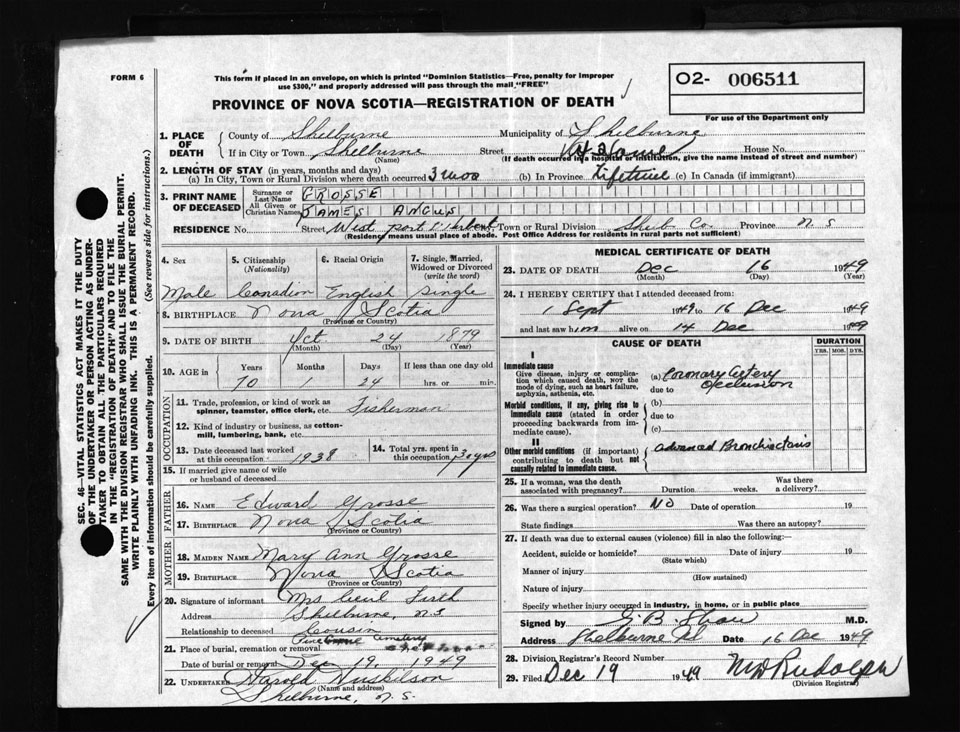 FORM 6
This form if placed in an envelope, on which is printed "Dominion Statistics—Free, penalty for improper
use $300," and properly addressed will pass through the mail "FREE"
O2- 006511
PROVINCE OF NOVA SCOTIA—REGISTRATION OF DEATH
For use of the Department only
1. PLACE OF DEATH County of Shelburne Municipality of Shelburne
If in City or Town Shelburne Street At Home House No.
(Name) (If death occurred in a hospital or institution, give the name instead of street and number)
2. LENGTH OF STAY (in years, months and days)
(a) In City, Town or Rural Division where death occurred 3 mos (b) In Province Lifetime (c) In Canada (if immigrant)
3. PRINT NAME OF DECEASED Surname or Last Name GROSSE
All Given or Christian Names JAMES ANGUS
RESIDENCE No. Street West Port L'Hebert Town or Rural Division Shelb. Co. Province N. S
(Residency means usual place of abode. Post Office Address for residents in rural parts not sufficient)
4. Sex 5. Citizenship (Nationality) 6. Racial Origin 7. Single, Married, Widowed or Divorced (write the word)
Male Canadian English Single
8. BIRTHPLACE Nova Scotia
(Province or Country)
9. DATE OF BIRTH Oct 24 1879
(Month) (Day) (Year)
10. AGE in Years Months Days If less than one day old
70 1 24 hrs. or min.
OCCUPATION
11. Trade, profession, or kind of work as spinner, teamster, office clerk, etc. Fisherman
12. Kind of industry or business, as cotton-mill, lumbering, bank, etc.
13. Date deceased last worked at this occupation 1938 14. Total yrs. spent in this occupation
15. If married give name of wife or husband of deceased
FATHER
16. NAME Edward Grosse
17. BIRTHPLACE Nova Scotia
(Province or Country)
MOTHER
18. MAIDEN NAME Mary Ann Grosse
19. BIRTHPLACE Nova Scotia
(Province or Country)
20. Signature of informant Mrs Cecil Firth
Address Shelburne, N.S
Relationship to deceased Cousin
21. Place of burial, cremation or removal Pine Cemetery
Date of burial or removal Dec 19, 1949
22. UNDERTAKER Harold Huskilson
(Name and address)
Shelburne, N. S.
MEDICAL CERTIFICATE OF DEATH
23. DATE OF DEATH Dec 16 1949
(Month) (Day) (Year)
24. I HEREBY CERTIFY that I attended deceased from:
1 Sept 1949 to 16 Dec 1949
and last saw him alive on 14 Dec 1949
CAUSE OF DEATH DURATION
YRS. MOS. DYS.
I
Immediate cause
Give disease, injury or complication which caused death, NOT the mode of dying, such as heart failure, asphyxia, asthenia, etc.
(a) Coronary Artery Occlusion
due to
Morbid conditions, if any, giving rise to immediate cause (stated in order proceeding backwards from immediate cause).
(b)
due to
(c)
II
Other morbid conditions (if important) contributing to death but not causally related to immediate cause.
Advanced Bronchiectasis
25. If a woman, was the death associated with pregnancy? Duration weeks. Was there a delivery?
26. Was there a surgical operation? NO Date of operation 19
State findings Was there an autopsy?
27. If death was due to external causes (violence) fill in also the following:—
Accident, suicide or homicide? Date of injury 19
(State which)
Manner of injury
(How sustained)
Nature of injury
Specify whether injury occurred in industry, in home, or in public place
Signed by G. B. Shaw M.D.
Address Shelburne NS Date 16 Dec 1949
28. Division Registrar's Record Number
29. Filed Dec 19 1949 Rudolph
(Division Registrar)
SEC. 46—VITAL STATISTICS ACT MAKES IT THE DUTY
OF THE UNDERTAKER OR PERSON ACTING AS UNDER-
TAKER TO OBTAIN ALL THE PARTICULARS REQUIRED
IN THE "REGISTRATION OF DEATH" AND TO FILE THE
SAME WITH THE DIVISION REGISTRAR WHO SHALL ISSUE THE BURIAL PERMIT.
WRITE PLAINLY WITH UNFADING INK. THIS IS A PERMANENT RECORD.
Every item of information should be carefully supplied. (See reverse side for instructions.)